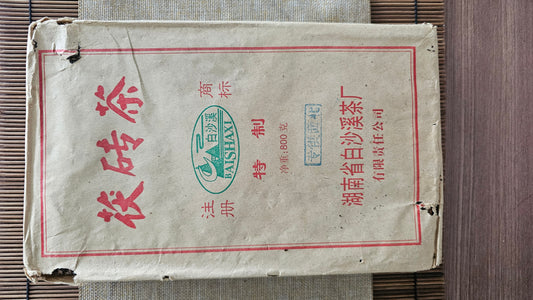 茯砖茶
注册
商标
白沙溪
BAISHAXI
特制
净重:800克
湖南省白沙溪茶厂
有限责任公司